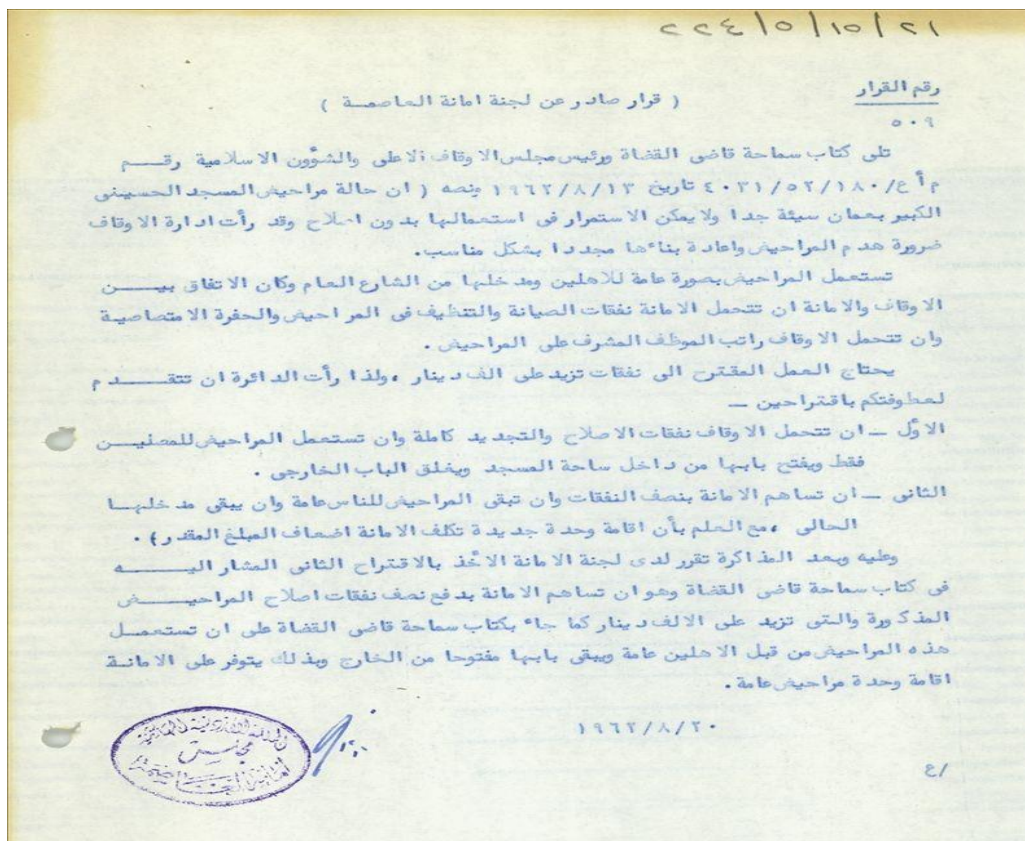 ٢٢٤/٥/١٥/٢١
رقم القرار
( قرار صادر عن لجنة امانة العاصمة )
٥٠٩
تلي كتاب سماحة قاضي القضاة ورئيس مجلس الاوقاف الاعلى والشؤون الاسلامية رقم
م أ ع/٤٠٣١/٥٢/١٨٠ تاريخ ١٩٦٢/٨/١٣ ونصه ( ان حالة مراحيض المسجد الحسيني
الكبير بعمان سيئة جدا ولا يمكن الاستمرار في استعمالها بدون اصلاح وقد رأت ادارة الاوقاف
ضرورة هدم المراحيض واعادة بناءها مجددا بشكل مناسب.
تستعمل المراحيض بصورة عامة للاهلين ومدخلها من الشارع العام وكان الاتفاق بين
الاوقاف والامانة ان تتحمل الامانة نفقات الصيانة والتنظيف في المراحيض والحفرة الامتصاصية
وان تتحمل الاوقاف راتب الموظف المشرف على المراحيض .
يحتاج العمل المقترح الى نفقات تزيد على الف دينار ،ولذا رأت الدائرة ان تتقدم
لعطوفتكم باقتراحين ــ
الاول ــ ان تتحمل الاوقاف نفقات الاصلاح والتجديد كاملة وان تستعمل المراحيض للمصلين
فقط ويفتح بابها من داخل ساحة المسجد ويغلق الباب الخارجي .
الثاني ــ ان تساهم الامانة بنصف النفقات وان تبقى المراحيض للناس عامة وان يبقى مدخلها
الحالي ،مع العلم بأن اقامة وحدة جديدة تكلف الامانة اضعاف المبلغ المقدر ) .
وعليه وبعد المذاكرة تقرر لدى لجنة الامانة الأخذ بالاقتراح الثاني المشار اليه
في كتاب سماحة قاضي القضاة وهو ان تساهم الامانة بدفع نصف نفقات اصلاح المراحيض
المذكورة والتي تزيد على الالف دينار كما جاء بكتاب سماحة قاضي القضاة على ان تستعمل
هذه المراحيض من قبل الاهلين عامة ويبقى بابها مفتوحا من الخارج وبذلك يتوفر على الامانة
اقامة وحدة مراحيض عامة .
١٩٦٢/٨/٢٠
المملكة الاردنية الهاشمية
مجلس
امانة العاصمة
/ع